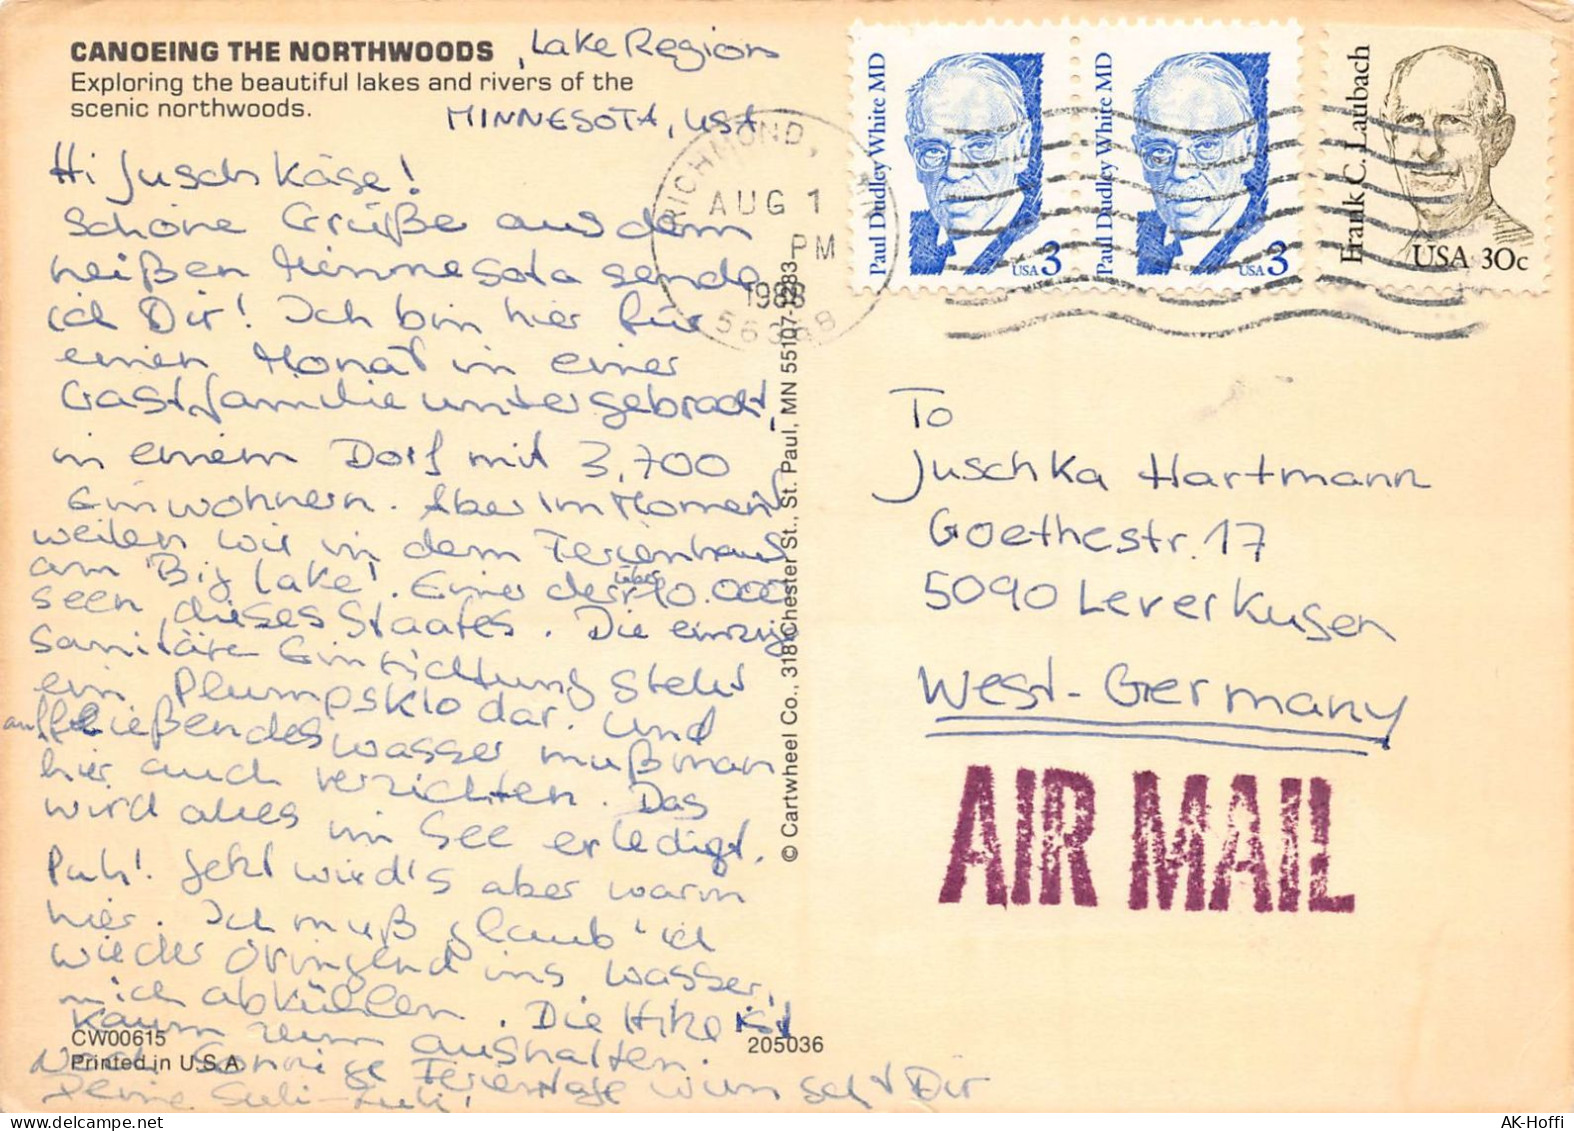 CANOEING THE NORTHWOODS , Lake Region
Exploring the beautiful lakes and rivers of the
scenic northwoods.
MINNESOTA, USA
Hi Juschkäse!
schöne Grüße aus dem
heißen Minnesota sende
ich Dir! Ich bin hier für
einen Monat in einer
Gastfamilie untergebracht,
in einem Dorf mit 3,700
Einwohnern. Aber im Moment
weilen wir in dem Ferienhaus
am 'Big Lake'. Einer der über 10.000
Seen dieses Staates. Die einzige
sanitäre Einrichtung stellt
ein Plumpsklo dar. Und
auf fließendes wasser muß man
hier auch verzichten. Das
wird alles im See erledigt.
Puh! Jetzt wird's aber warm
hier. Ich muß, glaub' ich
wieder dringend ins wasser,
mich abkühlen. Die Hitze ist
kaum zum aushalten.
Noch sonnige Ferientage wünscht Dir
Deine
CW00615
Printed in U.S.A.
205036
© Cartwheel Co., 318 Chester St., St. Paul, MN 55107-3283
RICHMOND, MN
AUG 1
PM
1988
56368
Paul Dudley White MD
USA 3
Paul Dudley White MD
USA 3
Frank C. Laubach
USA 30c
To
Juschka Hartmann
Goethestr. 17
5090 Leverkusen
West-Germany
AIR MAIL
AK-Hoffi